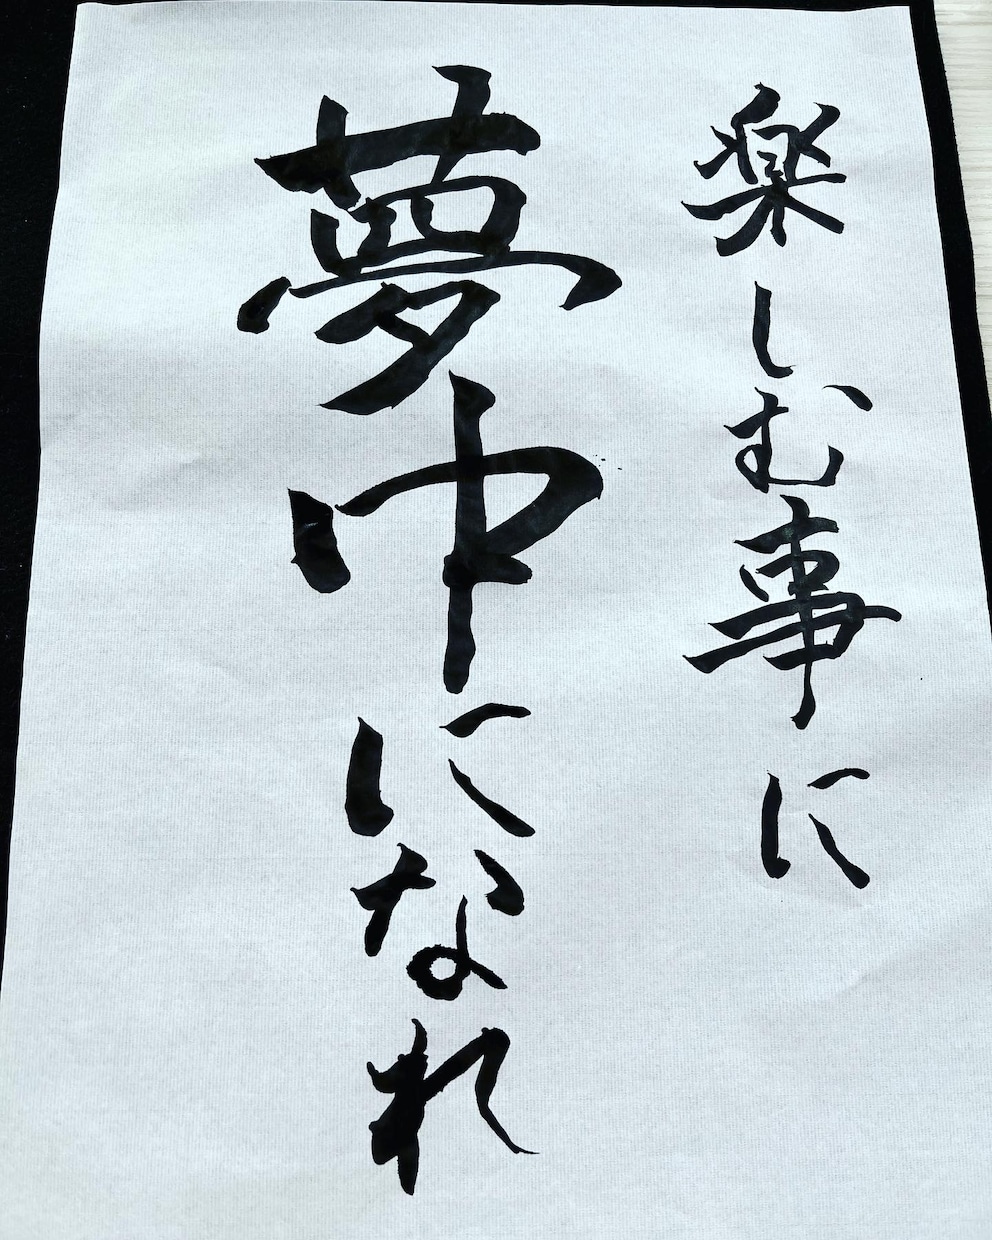 楽しむ事に
夢中になれ